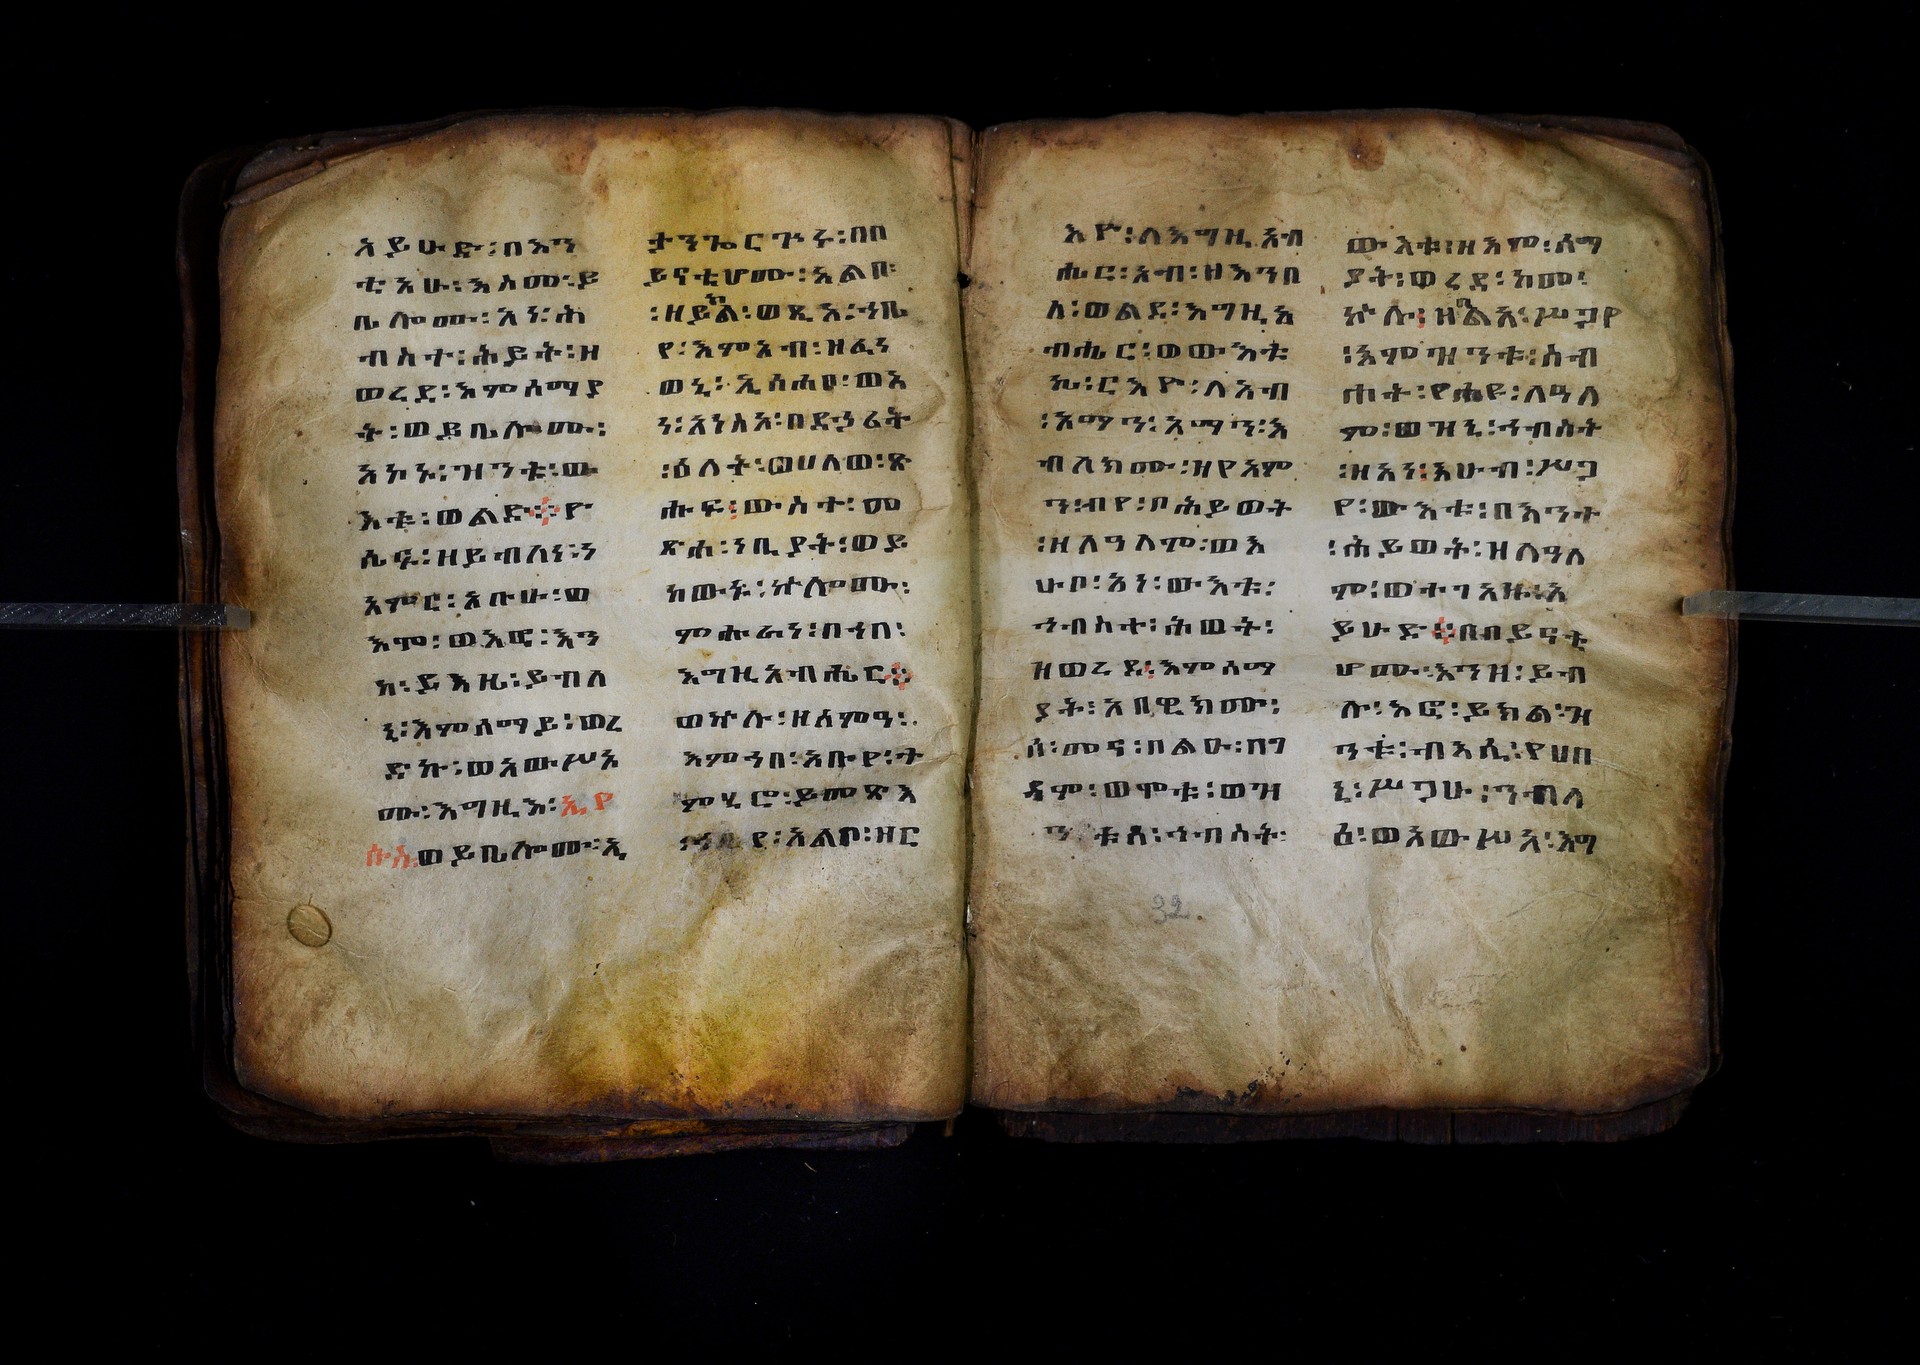 አይሁድ፡በእን
ቲአሁ፡እስመ፡ይ
ቤሎሙ፡አነ፡ሕ
ብስተ፡ሕይት፡ዘ
ወረደ፡እምሰማያ
ት፡ወይቤሎሙ፡
አኮኑ፡ዝንቱ፡ው
እቱ፡ወልደ፨ዮ
ሴፍ፡ዘይብለነ፡ን
አምር፡አቡሁ፡ወ
እሞ፡ወእፎ፡እን
ከ፡ይእዜ፡ይብለ
ኒ፡እምሰማይ፡ወረ
ድኩ፡ወአውሥአ
ሙ፡እግዚእ፡ኢየ
ሱስ፡ወይቤሎሙ፡ኢ
ታንጐርጕሩ፡በበ
ይናቲሆሙ፡አልቦ፡
፡ዘይክል፡ወጺአ፡ኀቤ
የ፡እምአብ፡ዘፈነ
ወኒ፡ኢሰሐቦ፡ወአ
ነ፡አነሥአ፡በደኃሪት
፡ዕለት፡ወሀለወ፡ጽ
ሑፍ፡ውስተ፡መ
ጽሐ፡ነቢያት፡ወይ
ከውኑ፡ኵሎሙ፡
ምሑራነ፡በኀበ፡
እግዚአብሔር፨
ወኵሉ፡ዘሰምዓ፡
እምኀበ፡አቡየ፡ት
ምሂሮ፡ይመጽእ
፡ኀቤየ፡አልቦ፡ዘር
እዮ፡ለእግዚአብ
ሔር፡አብ፡ዘእንበ
ለ፡ወልደ፡እግዚአ
ብሔር፡ወውእቱ
ኬ፡ርእዮ፡ለአብ
፡አማን፡አማን፡እ
ብለክሙ፡ዘየአም
ን፡ብየ፡ቦሕይወት
፡ዘለዓለም፡ወእ
ሁቦ፡አነ፡ውእቱ፡
ኀብስተ፡ሕወት፡
ዘወረደ፡እምሰማ
ያት፡አበዊክሙ፡
ሰ፡መና፡በልዑ፡በገ
ዳም፡ወሞቱ፡ወዝ
ንቱሰ፡ኀብስት፡
ውእቱ፡ዘእም፡ሰማ
ያት፡ወረደ፡ከመ፡
ኵሉ፡ዘበልአ፡ሥጋየ
፡እምዝንቱ፡ሰብ
ሐት፡የሐዩ፡ለዓለ
ም፡ወዝኒ፡ኀብስት
፡ዘአነ፡እሁብ፡ሥጋ
የ፡ውእቱ፡በእንተ
፡ሕይወት፡ዘለዓለ
ም፡ወተገአዙ፡አ
ይሁድ፨በበይናቲ
ሆሙ፡እንዘ፡ይብ
ሉ፡እፎ፡ይክል፡ዝ
ንቱ፡ብእሲ፡የሀበ
ኒ፡ሥጋሁ፡ንብላ
ዕ፡ወአውሥአ፡እግ
32.